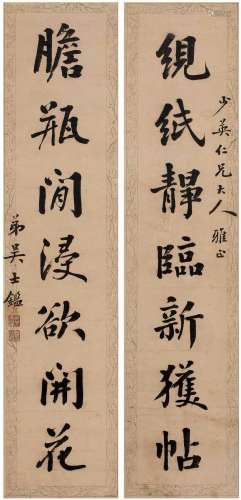 少英仁兄大人雅正
繭紙靜臨新獲帖
膽瓶閒浸欲開花
弟吳士鑑